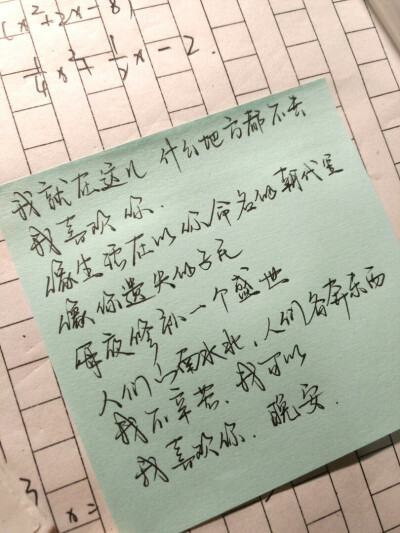 (x²+2x-8)
1/4x²+1/2x-2.
我就在这儿 什么地方都不去
我喜欢你.
像生活在以你命名的朝代里
像你遗失的子民
每夜修补一个盛世
人们山南水北,人们各奔东西
我不辛苦,我可以
我喜欢你. 晚安.
3
x=